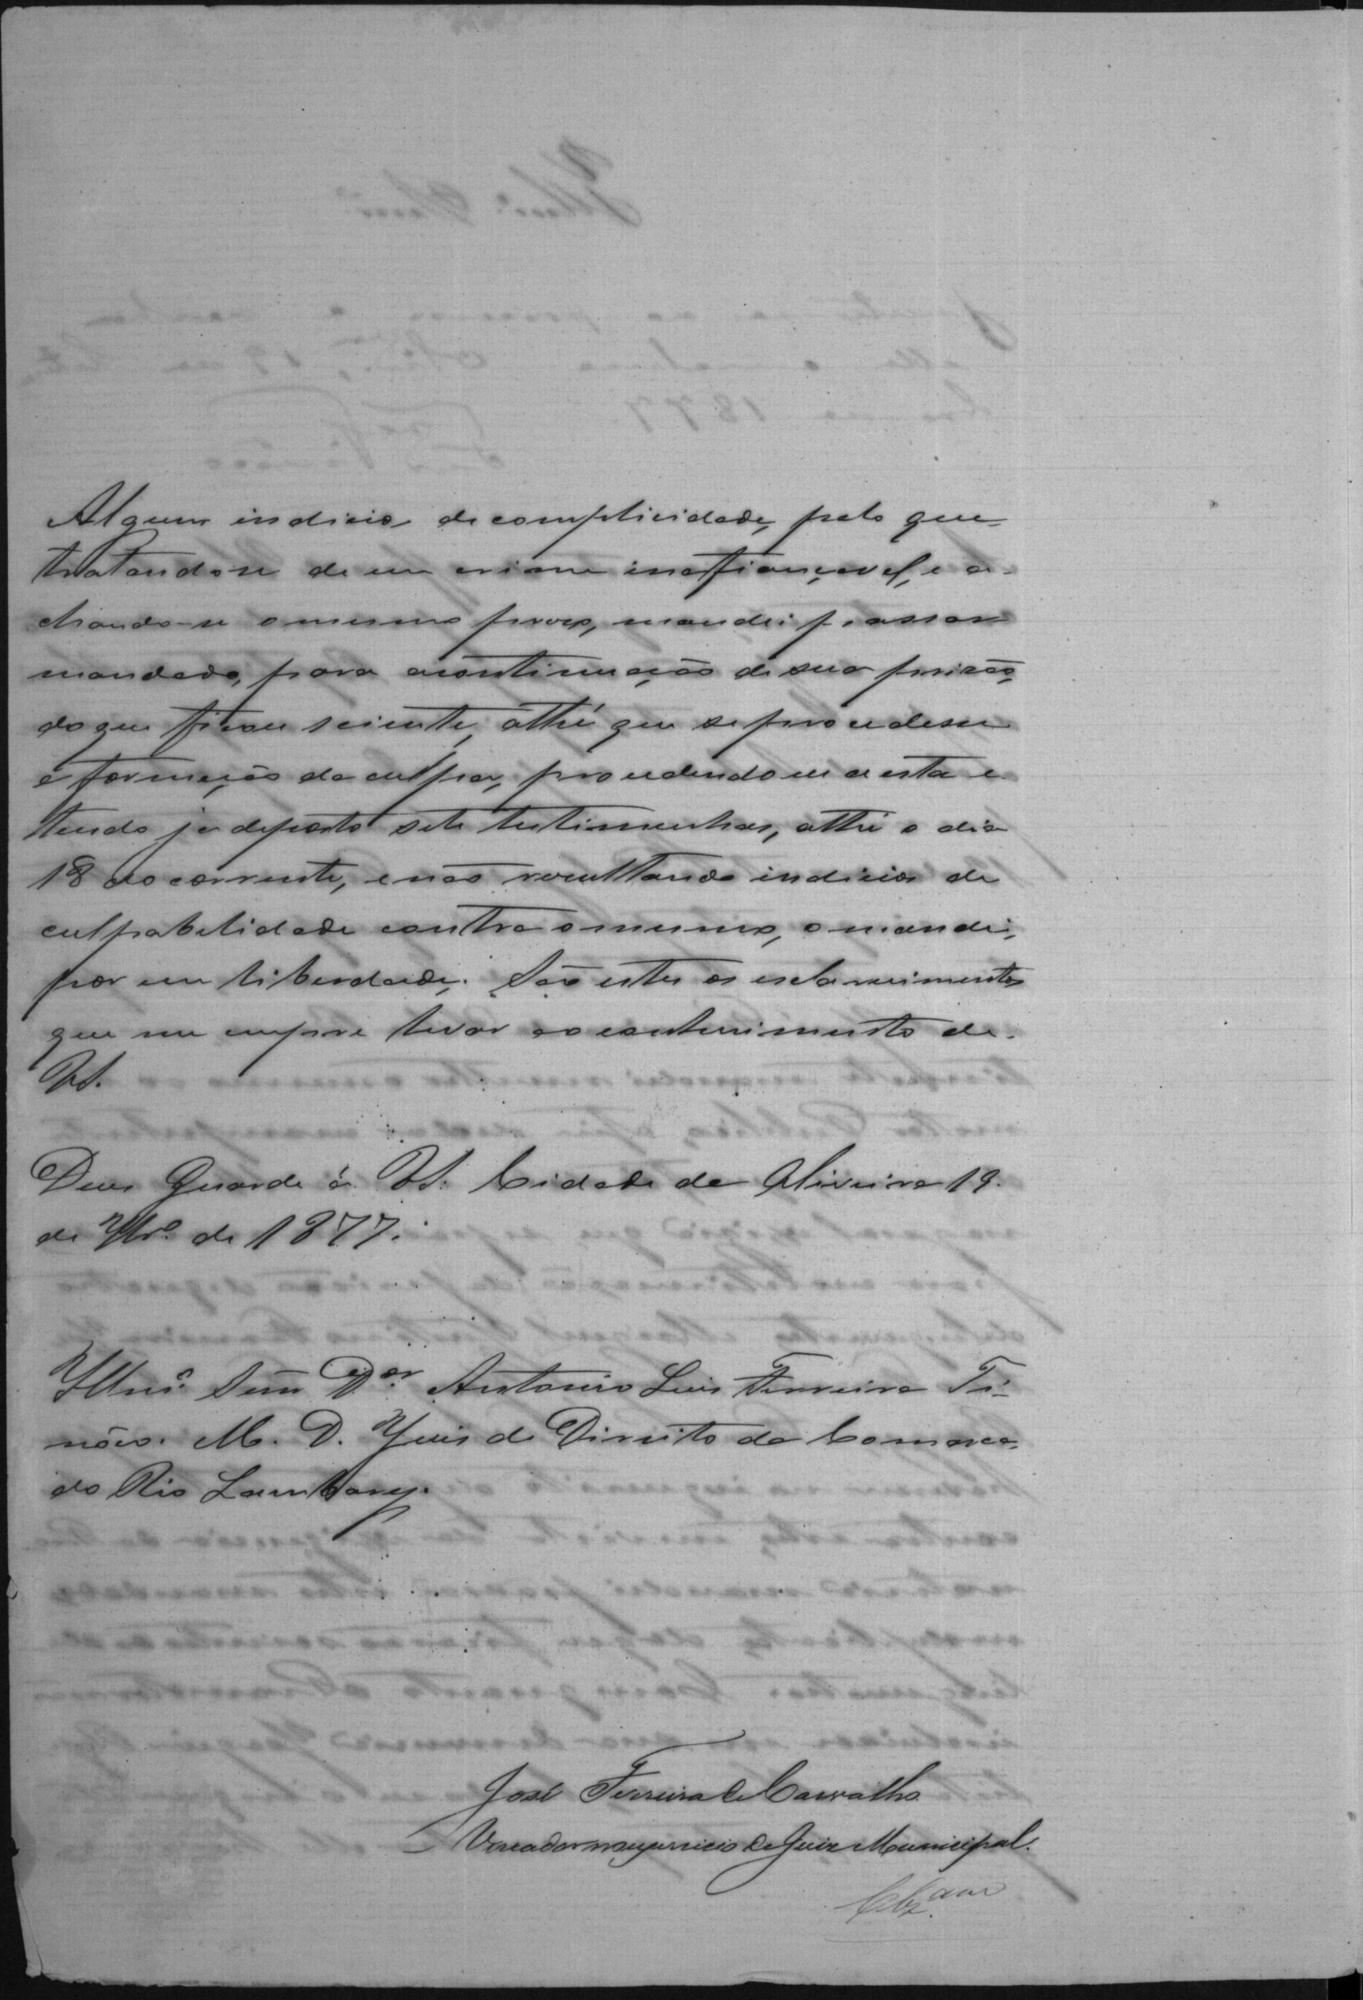 Algum indicio de complicidade, pelo que
tratando-se de um crime inafiançavel, e a-
chando-se o mesmo prezo, mandei passar
mandado, para acontinuação de sua prizão,
do que ficou sciente, athé que se procedesse
a formação da culpa, procedendo eu a esta e
tendo ja deposto sete testimunhas, athé o dia
18 do corrente, e não rezultando indicios de
culpabelidade contra o mesmo, o mandei,
por em liberdade. São estes os esclarecimentos
que me cumpre levar ao conhecimento de
VS.
Deus Guarde á VS. Cidade de Oliveira 19
de 7br.º de 1877.
Illmº Snr. Dor. Antonio Luis Ferreira Ti-
nôco. M. D. Juis de Direito da Comarca
do Rio Lambary.
José Ferreira de Carvalho
Vereador no exercicio de Juiz Municipal.